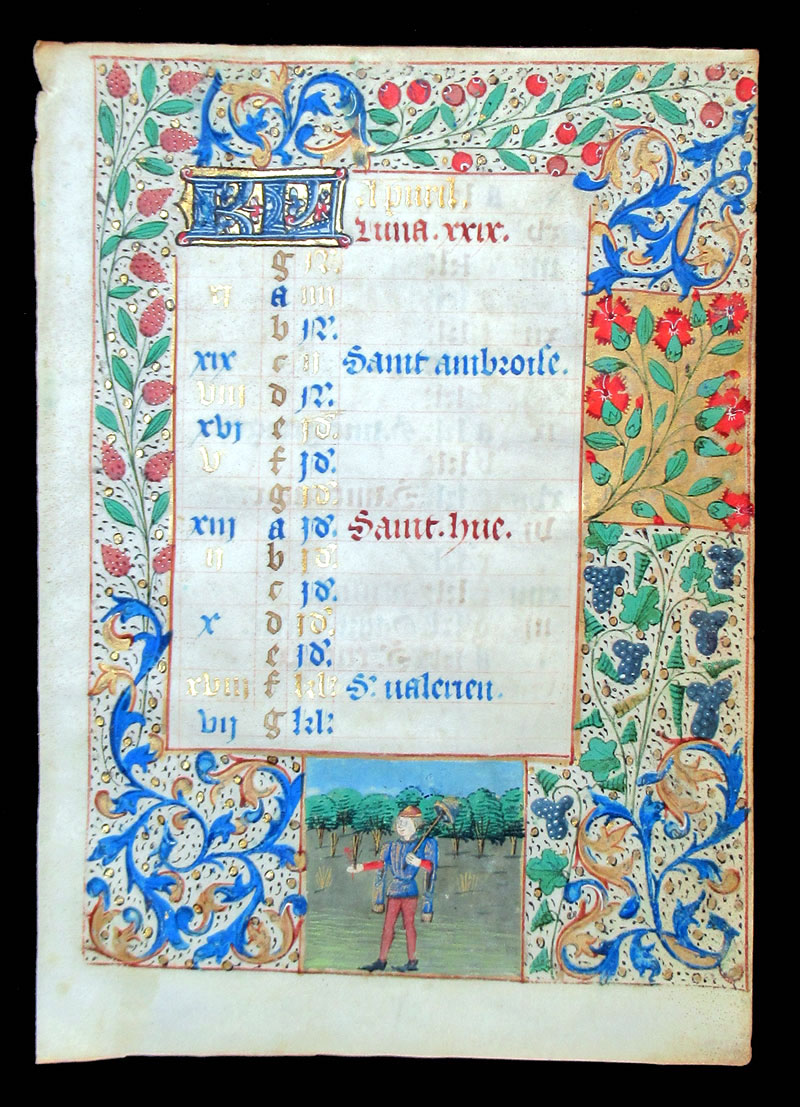 KL Apuril.
Luna.xxix.
g N.
xj a iiij
b N.
xix c ij Saint ambroise.
viij d N.
xvj e jd.
v f jd.
g jd.
xiij a jd. Saint.hue.
ij b jd.
c jd.
x d jd.
e jd.
xviij f kl S. ualerien.
vij g kl